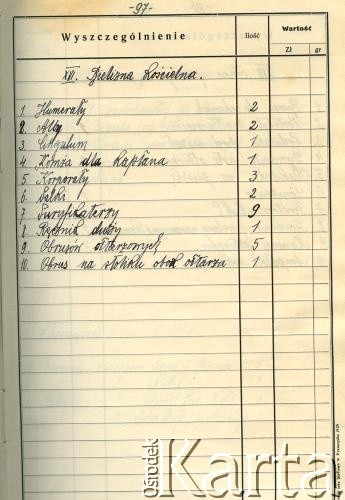 -97-
Wyszczególnienie Ilość Wartość
Zł gr
XVI. Bielizna Kościelna.
1. Humerały 2
2. Alby 2
3. Cingulum 1
4 Komża dla Kapłana 1
5. Korporały 3
6. Palki 2
7 Puryfikaterzy 9
8. Ręcznik duży 1
9. Obrusów ołtarzowych 5
10. Obrus na stoliku obok ołtarza 1
Ośrodek
Karta